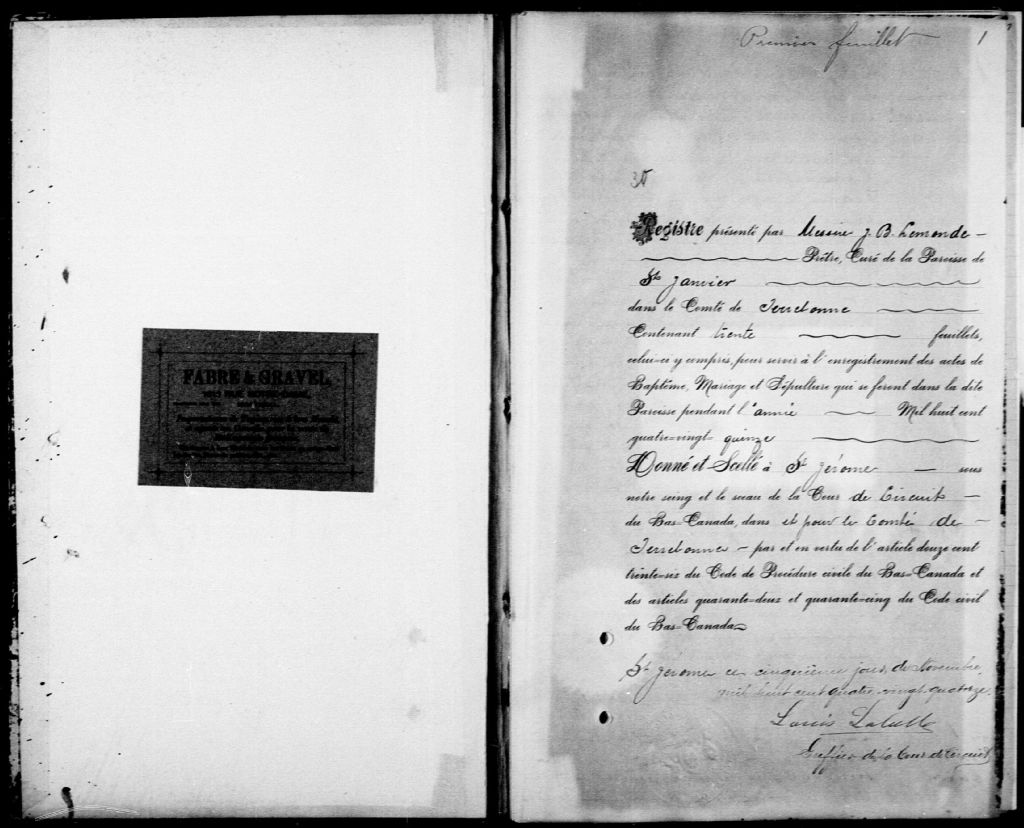 FABRE & GRAVEL,
Premier feuillet 1
30
Registre présenté par Messire J. B. Lemonde
Prêtre, Curé de la Paroisse de
St Janvier
dans le Comté de Terrebonne
Contenant trente feuillets,
celui-ci y compris, pour servir à l'enregistrement des actes de
Baptême, Mariage et Sépulture qui se feront dans la dite
Paroisse pendant l'année Mil huit cent
quatre-vingt-quinze
Donné et Scellé à St Jérome sous
notre seing et le sceau de la Cour de Circuit
du Bas-Canada, dans et pour le Comté de
Terrebonne - par et en vertu de l'article douze cent
trente-six du Code de Procédure civile du Bas-Canada et
des articles quarante-deux et quarante-cinq du Code civil
du Bas-Canada
St Jérome ce cinquième jour de Novembre
mil huit cent quatre-vingt-quatorze.
Louis
Greffier de la Cour de Circuit